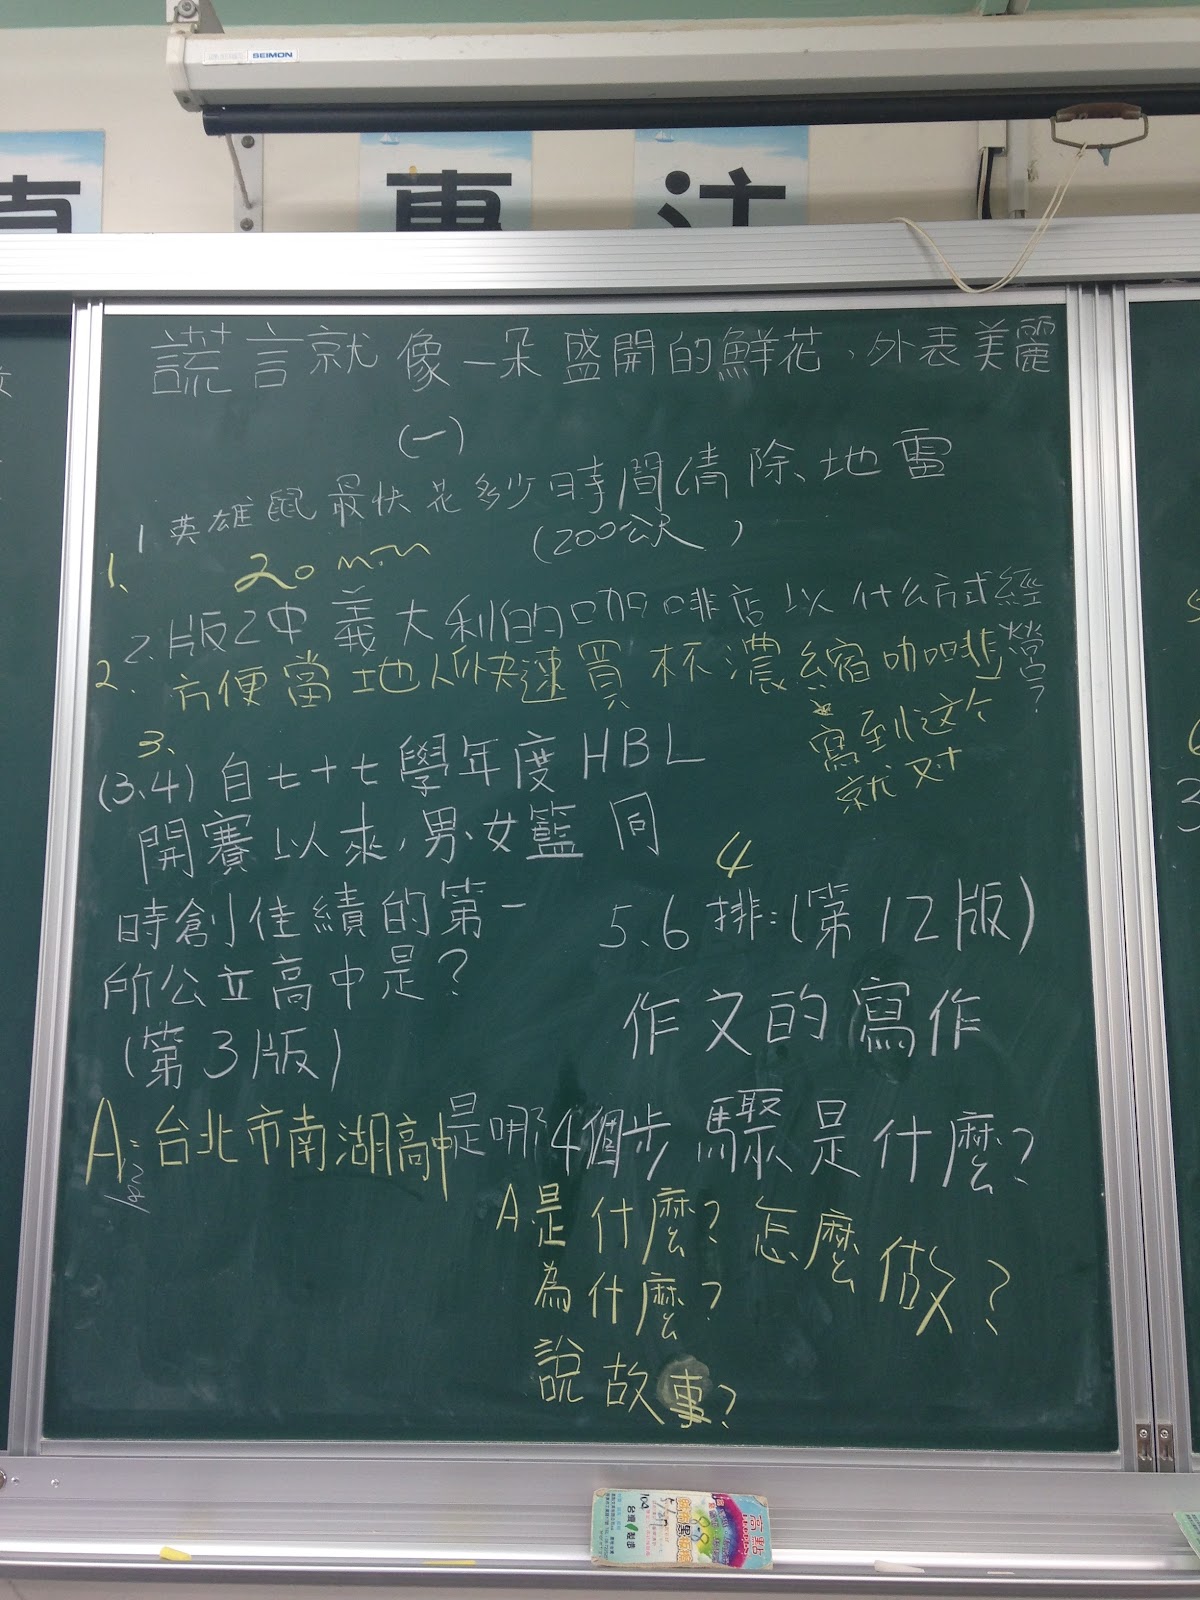 SEIMON
專 注
謊言就像一朵盛開的鮮花、外表美麗
(一)
1 英雄鼠最快花多少時間清除地雷
(200公尺)
1、 20 min
2. 版2中義大利的咖啡店以什么方式經營?
2. 方便當地人快速買杯濃縮咖啡
寫到這个
就好
3、
(3、4) 自七十七學年度HBL
開賽以來,男、女籃同
時創佳績的第一
所公立高中是?
(第3版)
A:台北市南湖高中
4
5、6排:(第12版)
作文的寫作
是哪4個步驟是什麼?
A是什麼?怎麼做?
為什麼?
說故事?
高點
台灣製造